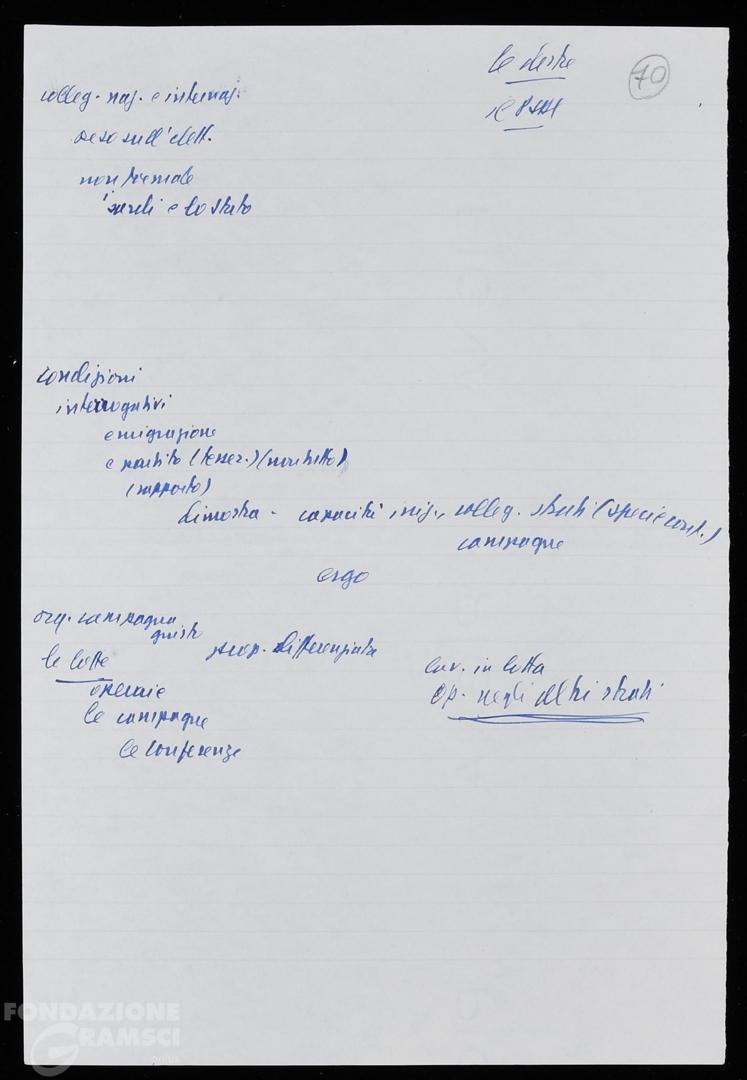 le destre
70
il PSDI
colleg. naz. e internaz.
peso sull'elett.
non formale
i ceti e lo stato
condizioni
interrogativi
emigrazione
e partito (tesser.) (
(rapporto)
dimostra - capacità iniz., colleg. strati (specie
campagne
ergo
org. campagna
giusta
le lotte
prop. differenziata
operaie
lav. in lotta
le campagne
op. negli altri strati
le conferenze
FONDAZIONE
GRAMSCI
onlus